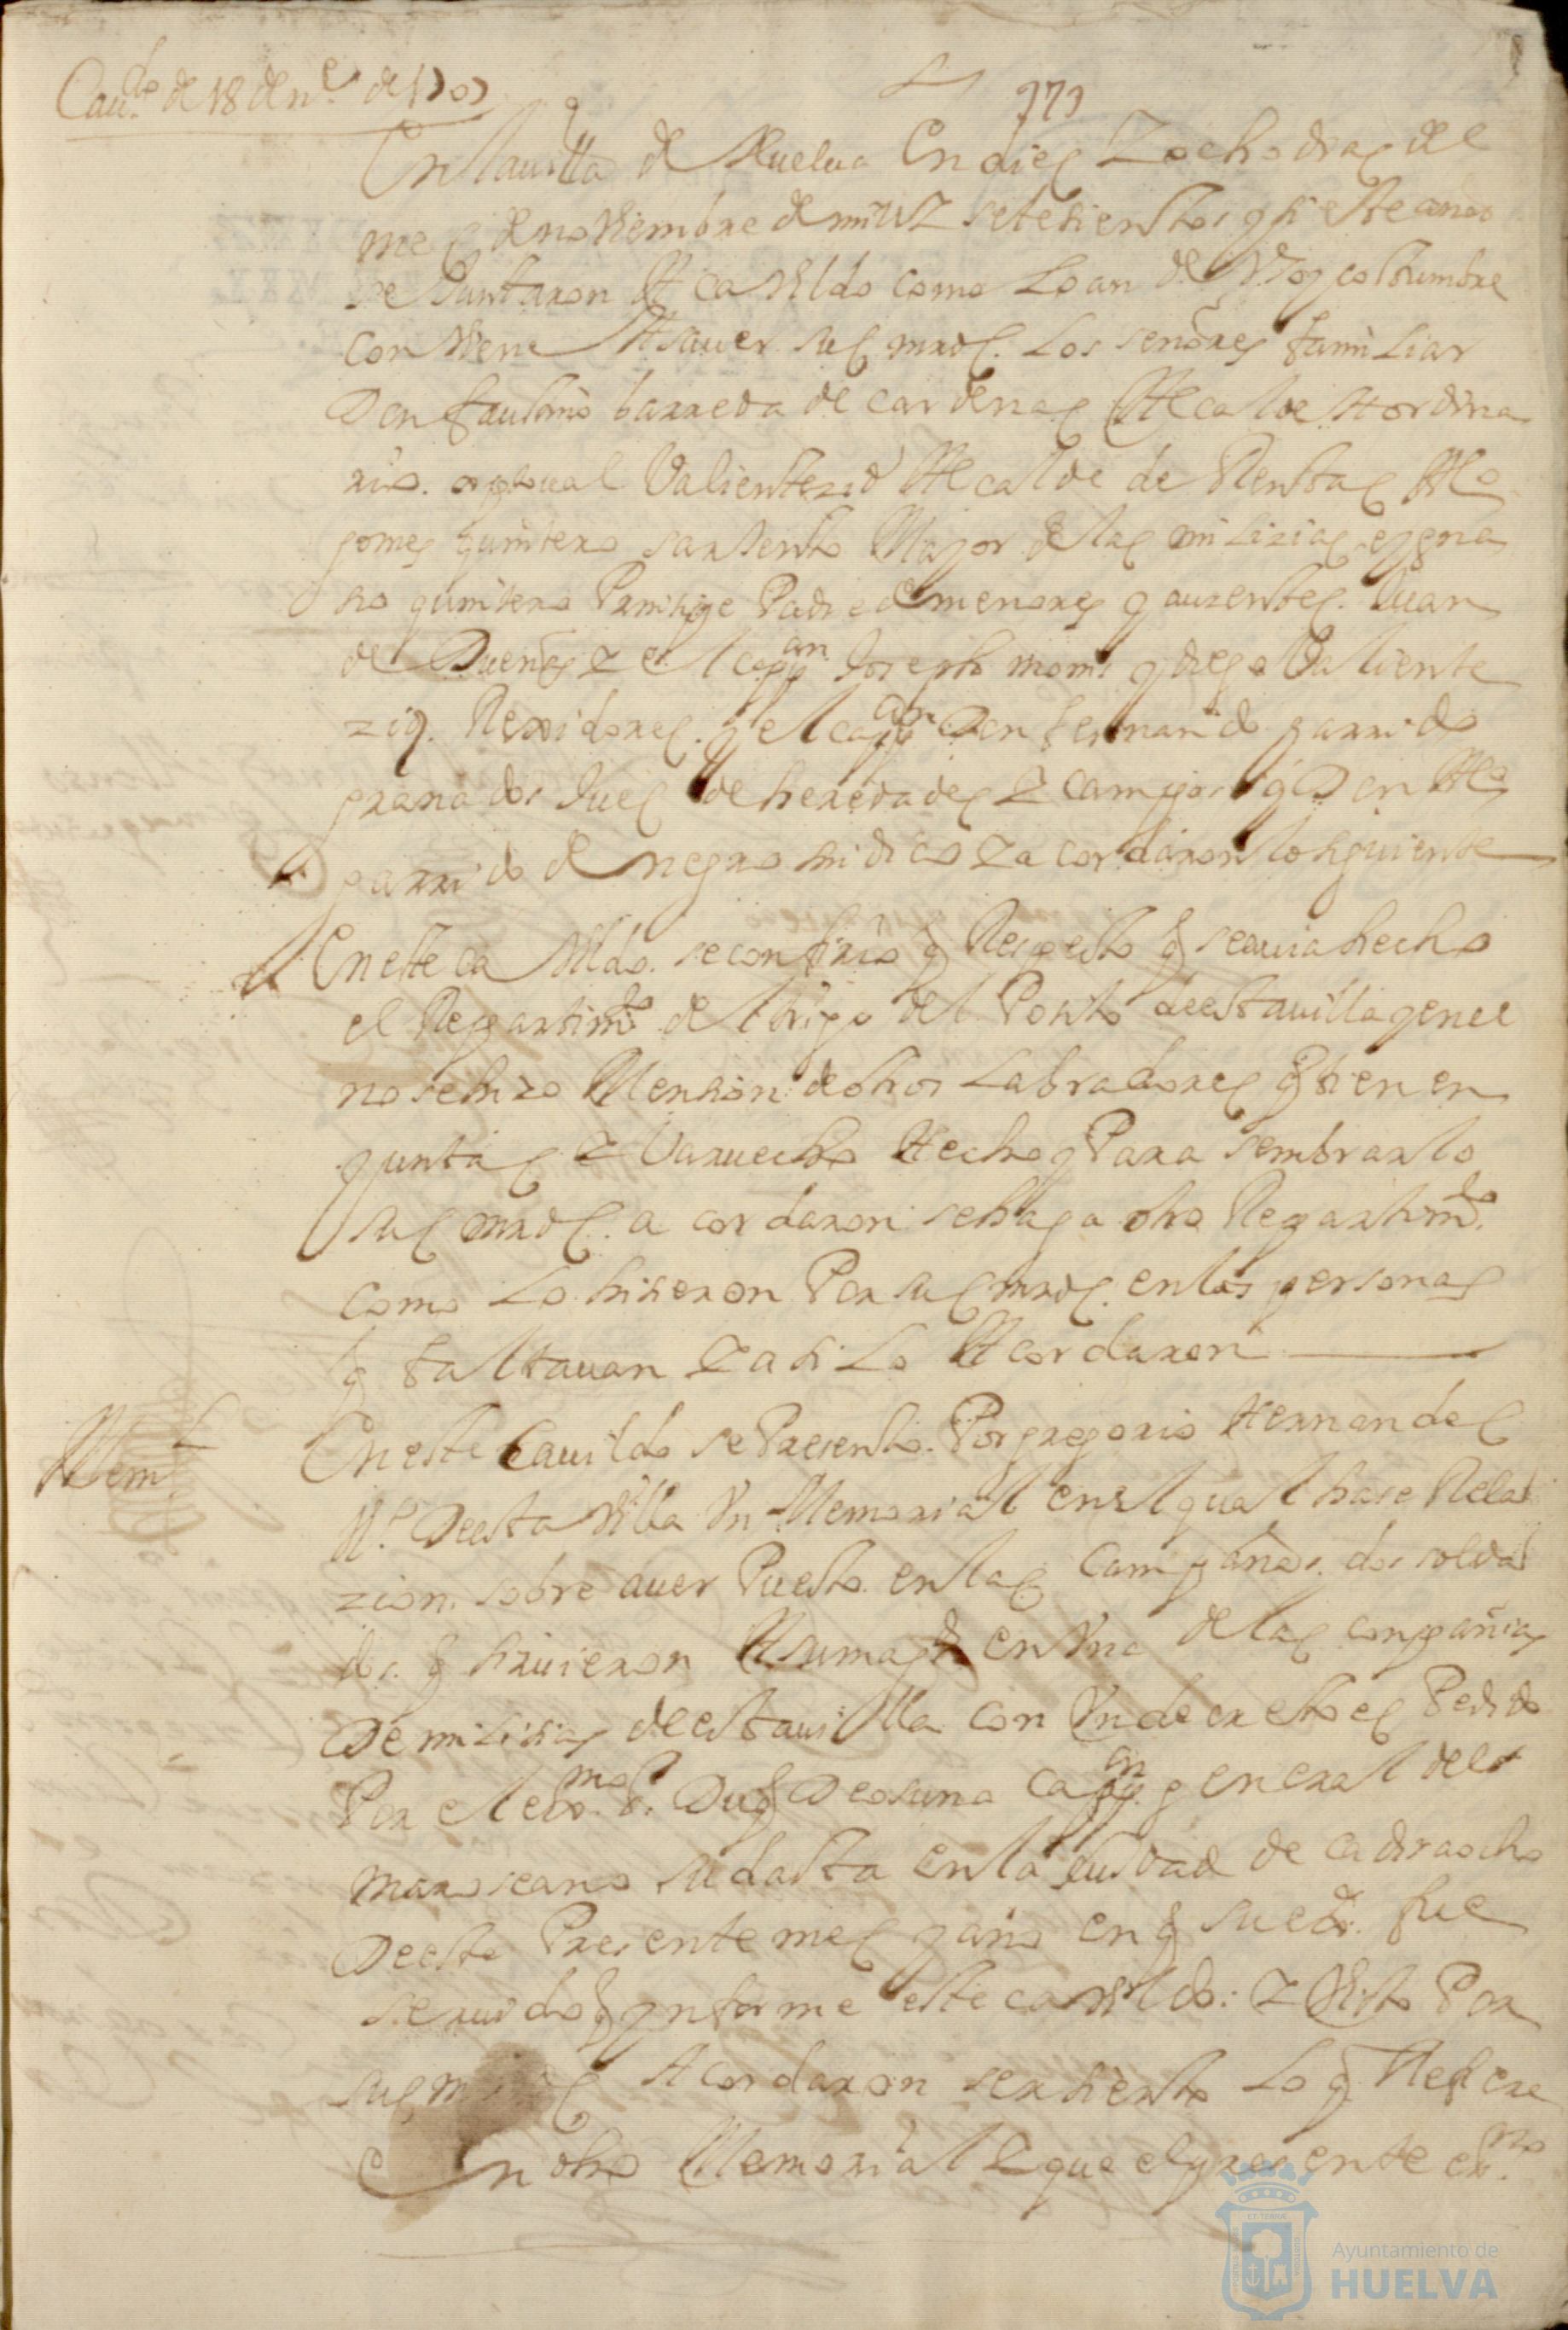 Cau.do de 18 de n.e de 1707
171
En la uilla de Huelua En dies Z ocho dias del
mes de noviembre de mill Z setesientos y siete años
se Juntaron A cavildo como Lo an de Uso y costumbre
conviene A sauer sus mrds. Los señores familiar
Don faustino barreda de cardenas Alcalde Hordina
rio. xptoual Valiente zid Alcalde de Rentas Al.o
gomes quintero sarxento Mayor de las milizias, ygna
sio quintero Padre de menores y auzentes. Juan
de Dueñas Z el cappan Joseph y diego Valiente
zid. Rexidores. y el cappan Don fernando garrido
granados Jues de heredades Z campos y Don Al.o
garrido de negro sindico Z acordaron lo siguiente
En este cavildo. se confirio q Respecto q se auia hecho
el Repartim.to del trigo del Posito de esta uilla y en el
no se hizo Mension de otros Labradores q tienen
yuntas Z Varuecho Hecho y Para sembrarlo
sus mrds. acordaron se haga otro Repartim.to
como Lo hisieron Por sus mrds. en las personas
q faltauan Z asi Lo Acordaron
Mem.l
En este Cauildo se Presento. Por gregorio Hernandes
V.o De esta Villa Un Memorial en el qual hase Rela
zion. sobre auer Puesto en las Campañas. dos solda
dos. q siruieron A su mag.d en Una de las compañias
De milisias de esta uilla con Un decreto es Pedido
Por el exmo. S. Duq De osuna cappan general del
mar oseano su data en la siudad de cadis a ocho
De este Presente mes y año en q su ex.a fue
seruido q ynforme este cavildo: Z Visto Por
sus Acordaron ser sierto Lo q Refiere
En dho Memorial Z que el presente es.no
Ayuntamiento de
HUELVA